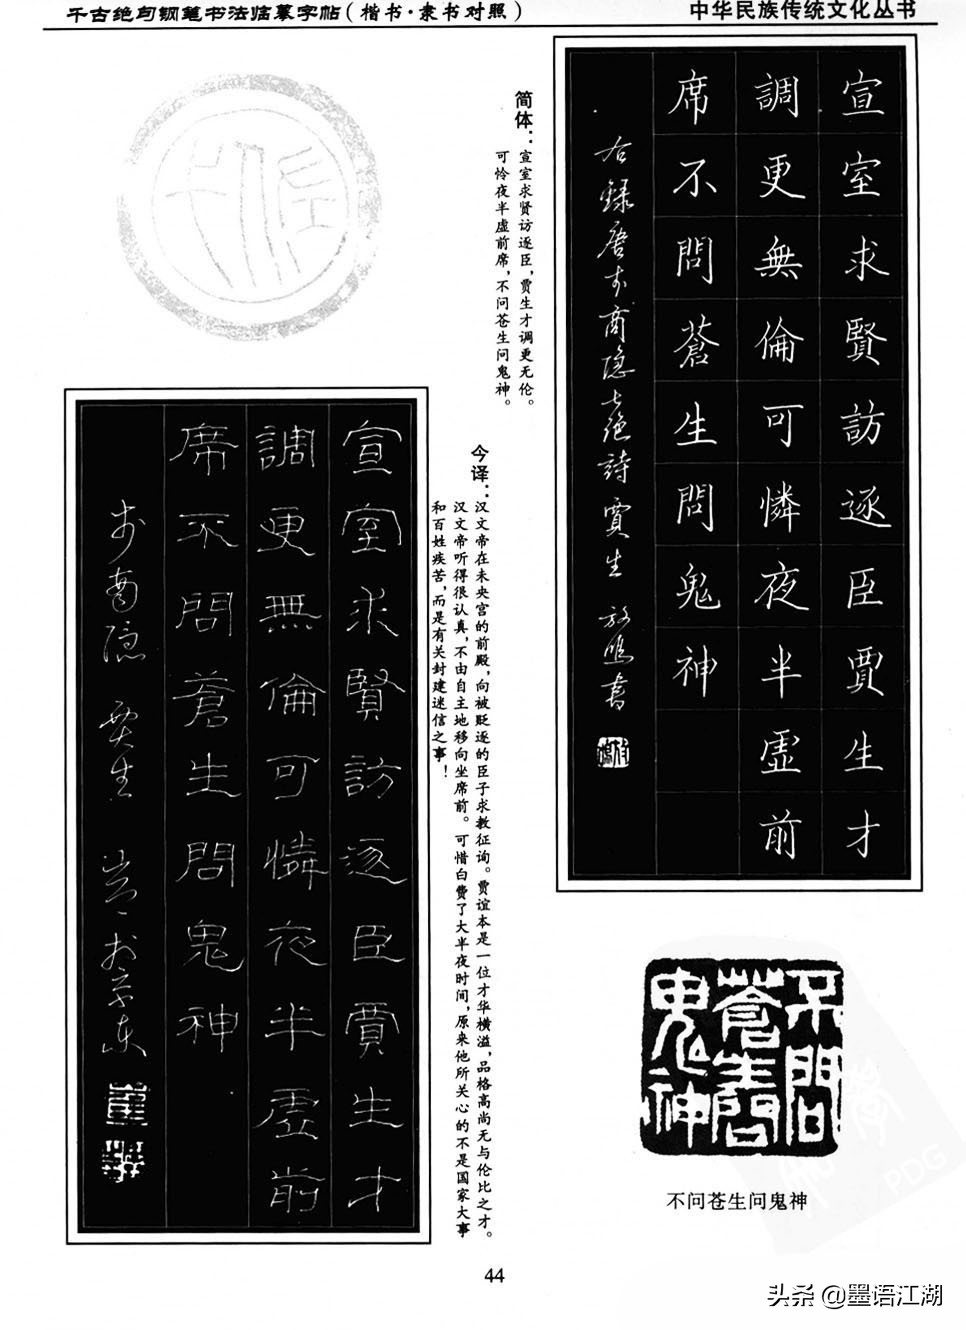 千古绝句钢笔书法临摹字帖(楷书·隶书对照)
中华民族传统文化丛书
宣室求賢訪逐臣賈生才
調更無倫可憐夜半虛前
席不問蒼生問鬼神
右録唐李商隐七绝詩賈生
简体：
宣室求贤访逐臣，贾生才调更无伦。
可怜夜半虚前席，不问苍生问鬼神。
今译：
汉文帝在未央宫的前殿，向被贬逐的臣子求教征询。贾谊本是一位才华横溢，品格高尚无与伦比之才。
汉文帝听得很认真，不由自主地移向坐席前。可惜白费了大半夜时间，原来他所关心的不是国家大事
和百姓疾苦，而是有关封建迷信之事！
宣室求賢訪逐臣賈生才
調更無倫可憐夜半虛前
席不問蒼生問鬼神
李商隐 贾生
不問蒼生問鬼神
不问苍生问鬼神
44
PDG
头条 @墨语江湖